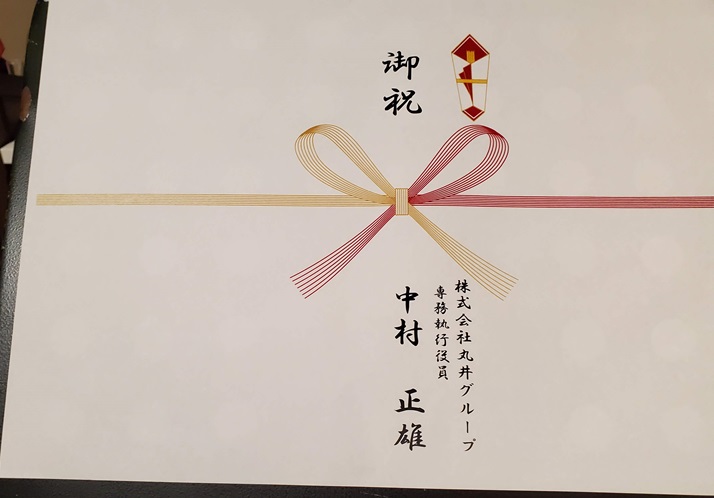 御祝
株式会社丸井グループ
専務執行役員
中村 正雄